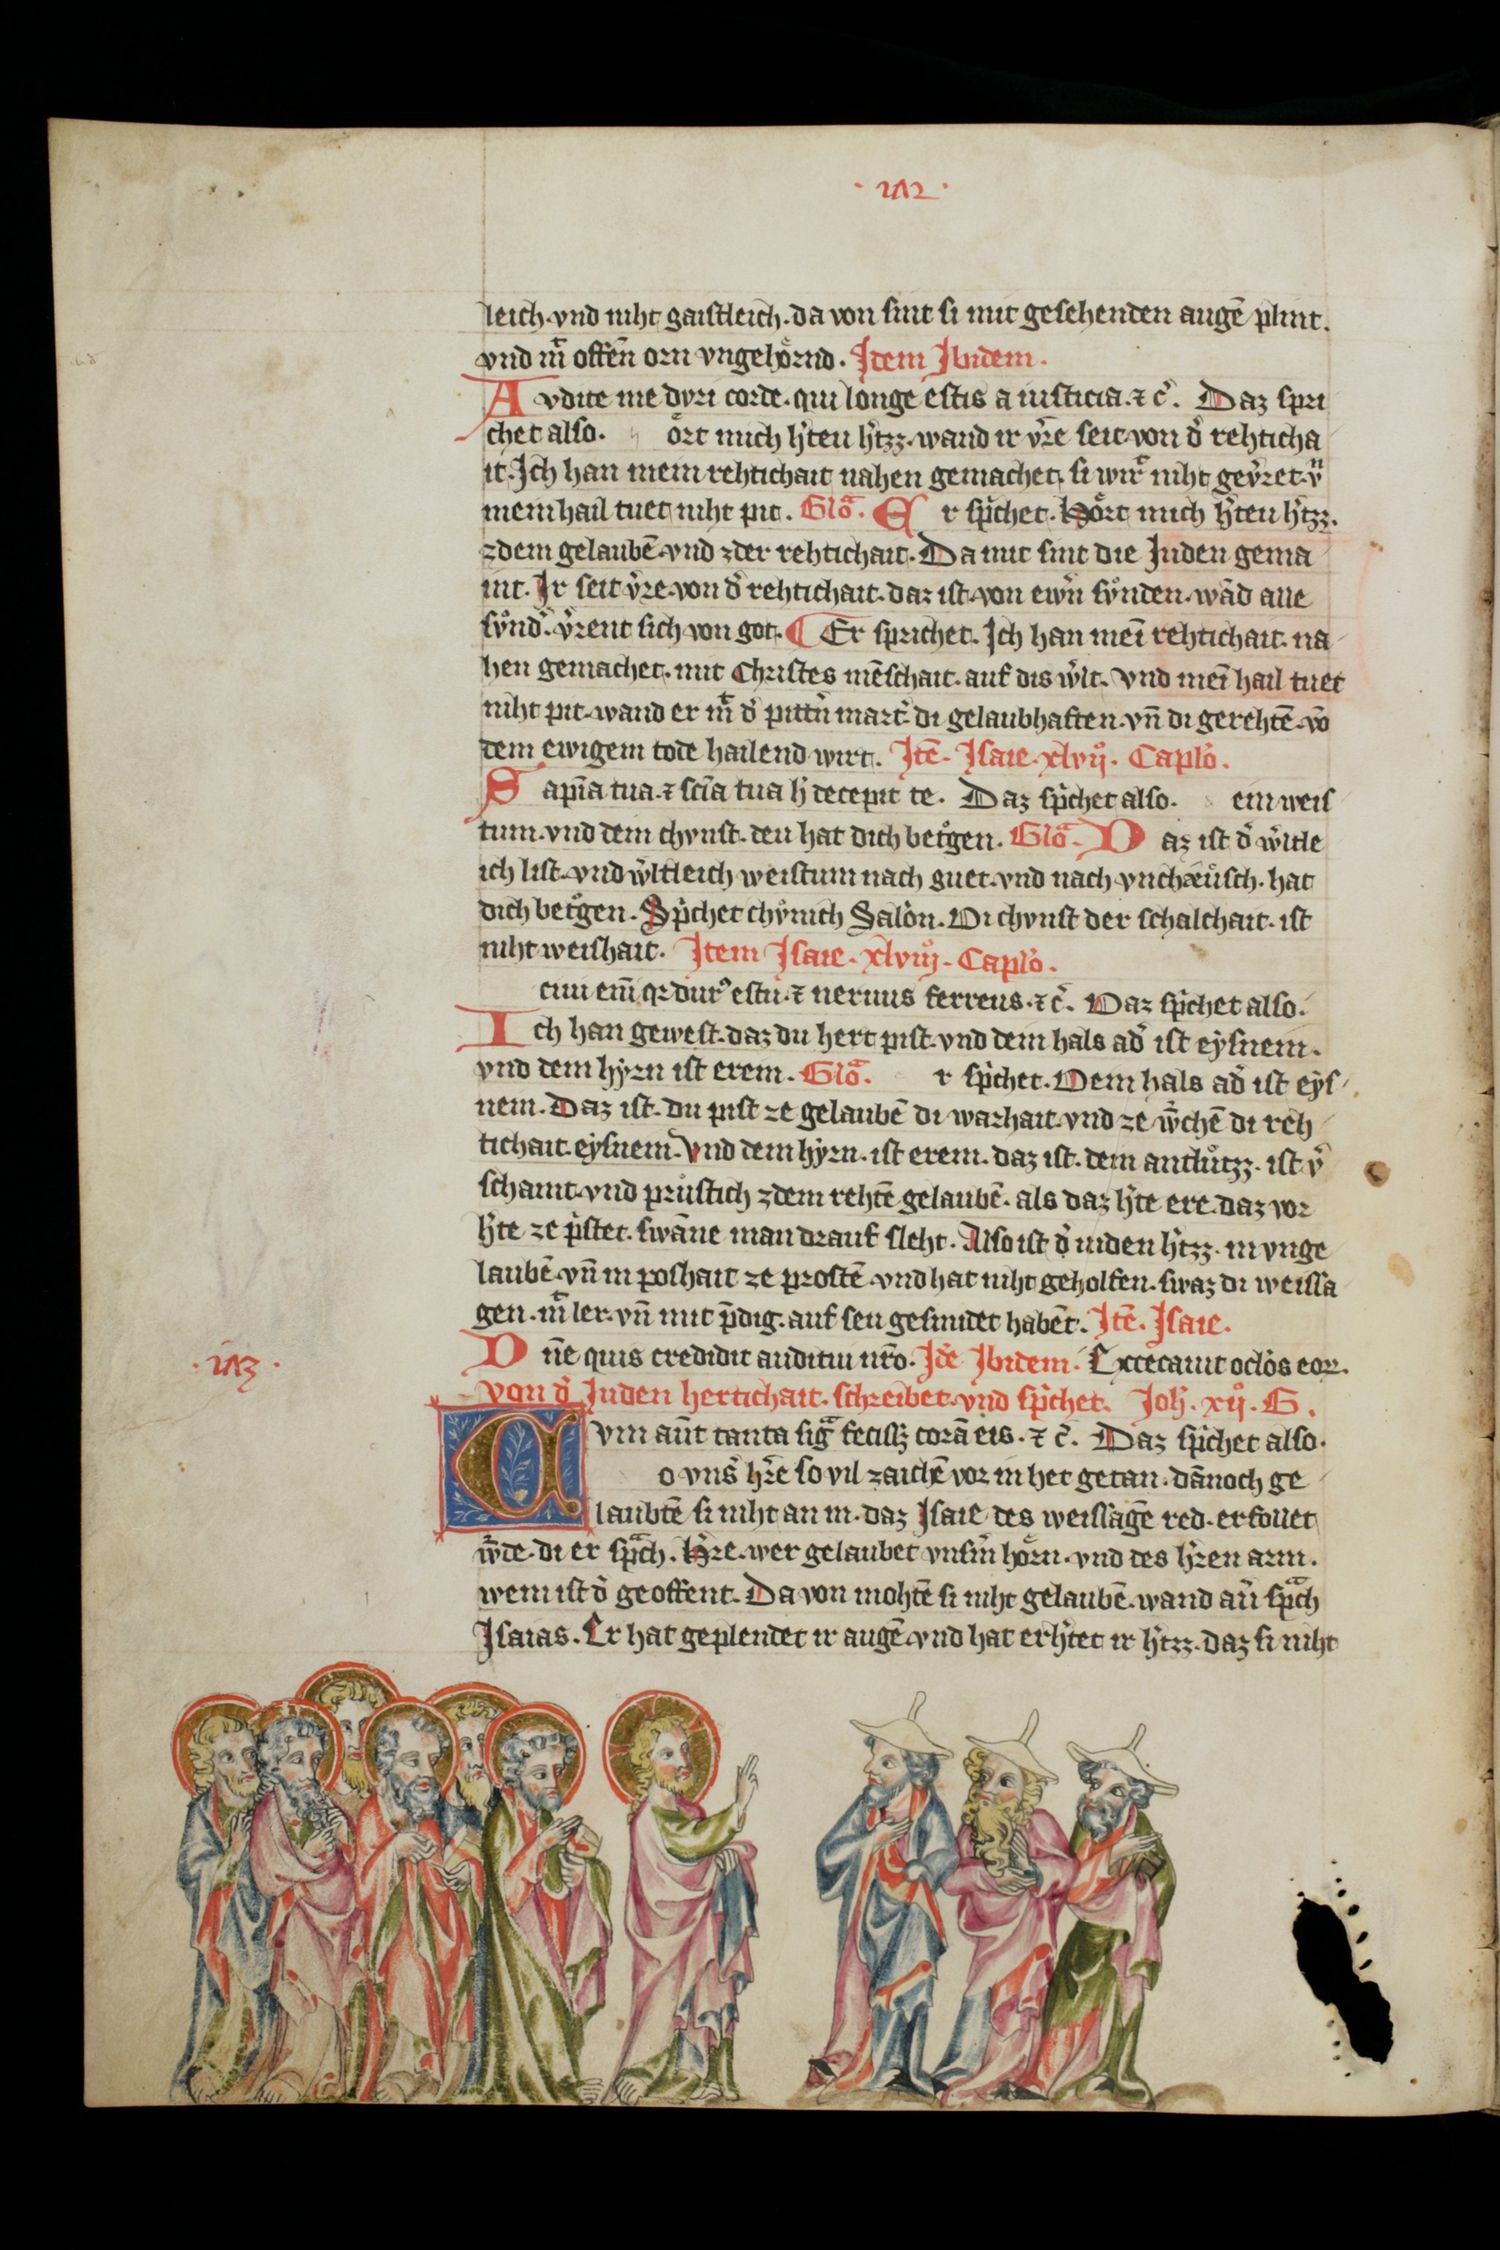 leich · vnd niht gaistleich · da von sint si mit gesehenden augē plint .
vnd mͭ offen̄ orn vngehoͤrnd . Jtem Jbidem .
Avdite me dvri corde · qui longe estis a iusticia · ⁊ cͣ . Daz spri
chet also . oͤrt mich hʼteu hʼtzz · wand ir vʼre seit · von dʼ rehticha
it · Jch han mein rehtichait nahen gemachet · si wirt niht gevʼret · vn̄
mein hail tuet niht pit . Gloͣ . Er spͥchet . Hoͤrt mich hʼteu hʼtzz .
zdem gelaubē · vnd zder rehtichait · Da mit sint die Juden gema
int . Jr seit vʼre · von dʼ rehtichait · daz ist · von ewʼn svͤnden · wād alle
svͤndʼ · vʼrent sich von got . Er sprichet . Jch han meī rehtichait · na
hen gemachet · mit Christes mēschait · auf dis wʼlt . Vnd meī hail tuet
niht pit · wand er mͭ dʼ pittʼn martʼ di gelaubhaften · vn̄ di gerehtē · vō
dem ewigem tode hailend wirt . Jtē · Jsaie · xlvijͦ · Caplͦo .
Sapīa tua · ⁊ scīa tua hʼ decepit te . Daz spͥchet also · ein weis
tum · vnd dein chvnst · deu hat dich betrͦgen . Gloͣ · Daz ist dʼ wʼltle
ich list · vnd wʼltleich weistum nach guet · vnd nach vnchæuͤsch · hat
dich betrͦgen . Spͥchet chvͤnich Salom̄on . Di chvnst der schalchait · ist
niht weishait . Jtem Jsaie · xlviijͦ · Caplͦo .
civi em̄ qꝛ durꝰ es tu · ⁊ neruus ferreus · ⁊ cͣ . Daz spͥchet also .
Ich han gewest · daz du hert pist · vnd dein hals adʼ ist eẏsnein .
vnd dein hẏrn ist erein . Gloͣ . r spͥchet . Dein hals adʼ ist eẏs
nein . Daz ist · du pist ze gelaubē di warhait · vnd ze wʼchē di reh
tichait · eẏsnein · Vnd dein hẏrn · ist erein · daz ist · dein antluͤtzz · ist vʼ
schamt · vnd pruͤstich zdem rehtē gelaubē · als daz hʼte ere · daz vor
hʼte ze pʼstet · swāne man drauf sleht . Also ist dʼ iuden hʼtzz · in vnge
laubē · vn̄ in poshait ze prostē · vnd hat niht geholfen · swaz di weissa
gen · mͭ ler · vn̄ mit pʼdig · auf seu gesmidet habēt . Jtē . Jsaie .
Dn̄e quis credidit auditui nr̄o . Jdē Jbidem . Excecauit oclͦos eoꝝ .
Von dʼ Juden hertichait · schreibet · vnd spͥchet . Joh̄ . xijͦ . G .
Cvm aūt tanta sigͣ fecissꝫ corā eis · ⁊ cͣ . Daz spͥchet also .
o vnsʼ hʼre so vil zaichē vor in het getan · dānoch ge
laubtē si niht an in · daz Jsaie des weissagē red · erfollet
wʼde · di er spͣch . Hʼre · wer gelaubet vnsʼm hoͤrn · vnd des hʼren arm .
wem ist dʼ geoffent . Da von mohtē si niht gelaubē · wand aūʼ spͣch
Jsaias . Er hat geplendet ir augē · vnd hat erhʼtet ir hʼtzz · daz si niht